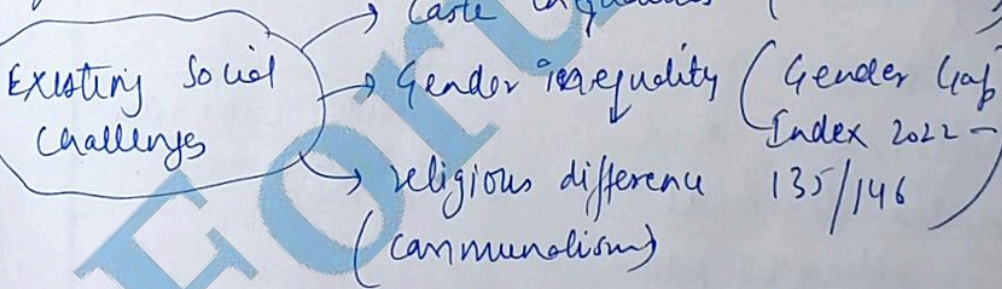 Caste
Existing Social
Challenges
Gender inequality (Gender Gap
Index 2022 -
135/146)
religious difference
(communalism)
ForU